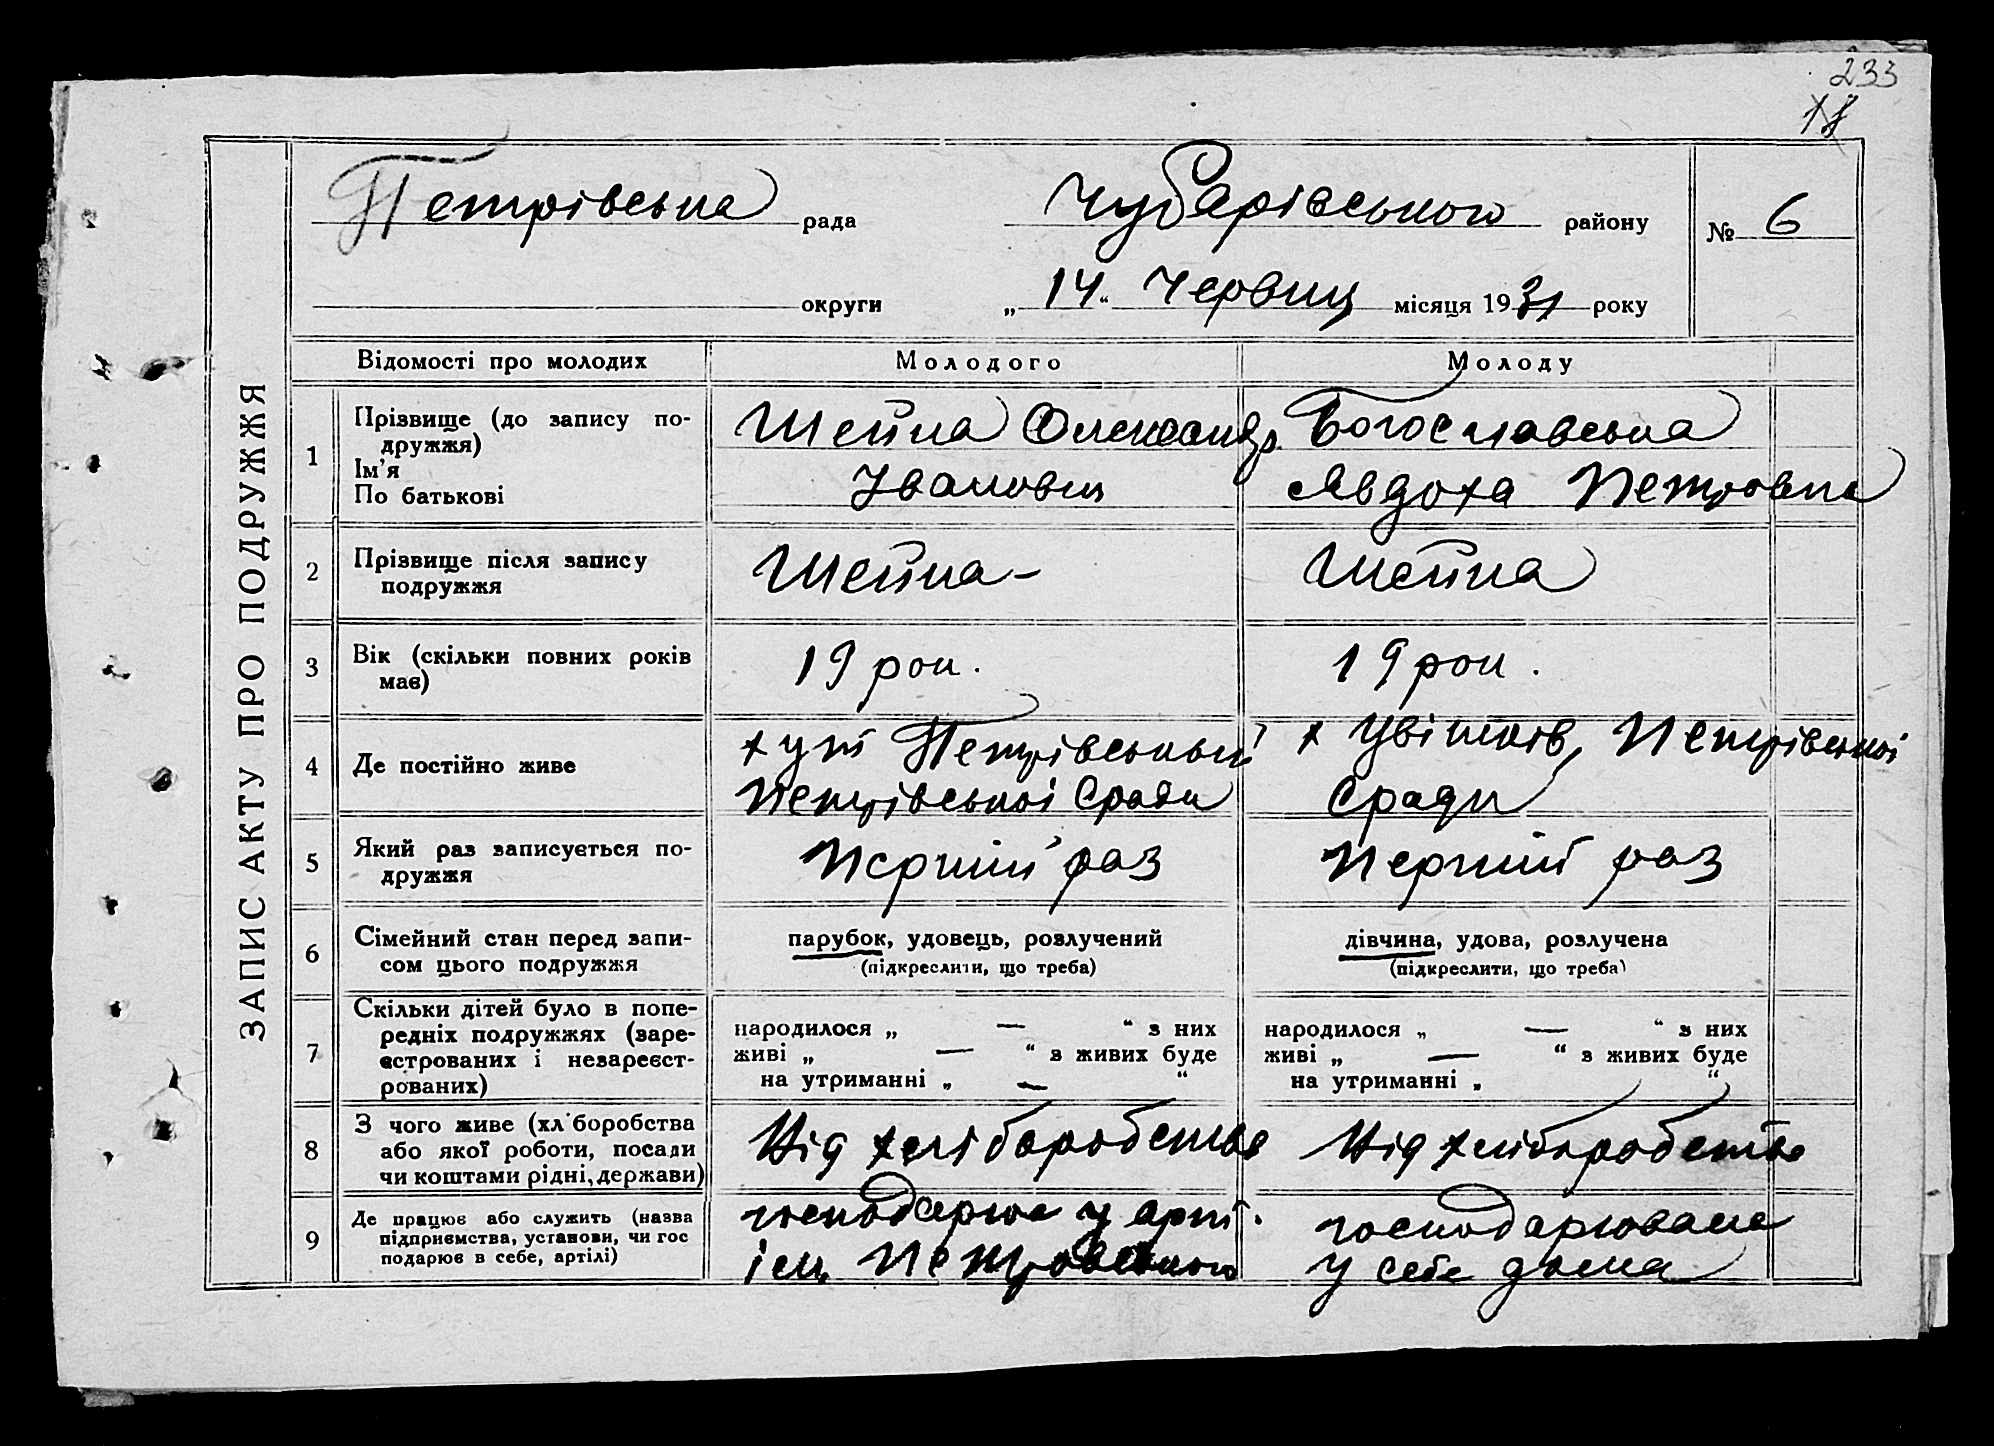 233
18
ЗАПИС АКТУ ПРО ПОДРУЖЖЯ
Петрівська рада Чубарівського району № 6
округи „14“ Червня місяця 1931 року
Відомості про молодих Молодого Молоду
1 Прізвище (до запису по-
дружжя)
Ім'я
По батькові
Шейка Олександр
Іванович
Богославська
Явдоха Петровна
2 Прізвище після запису
подружжя
Шейка -
Шейка
3 Вік (скільки повних років
має)
19 рок.
19 рок.
4 Де постійно живе
хут Петрівський
Петрівської Сради
х Цвітків, Петрівської
Сради
5 Який раз записується по-
дружжя
Перший раз
Перший раз
6 Сімейний стан перед запи-
сом цього подружжя
парубок, удовець, розлучений
(підкреслити, що треба)
дівчина, удова, розлучена
(підкреслити, що треба)
7 Скільки дітей було в попе-
редніх подружжях (заре-
єстрованих і незареєст-
рованих)
народилося „ — “ з них
живі „ — “ з живих буде
на утриманні „ — “
народилося „ — “ з них
живі „ — “ з живих буде
на утриманні „ “
8 З чого живе (хліборобства
або якої роботи, посади
чи коштами рідні, держави)
Від хліборобства
Від хліборобства
9 Де працює або служить (назва
підприємства, установи, чи гос
подарює в себе, артілі)
господарює у арті-
Петровського
господарювала
у себе дома